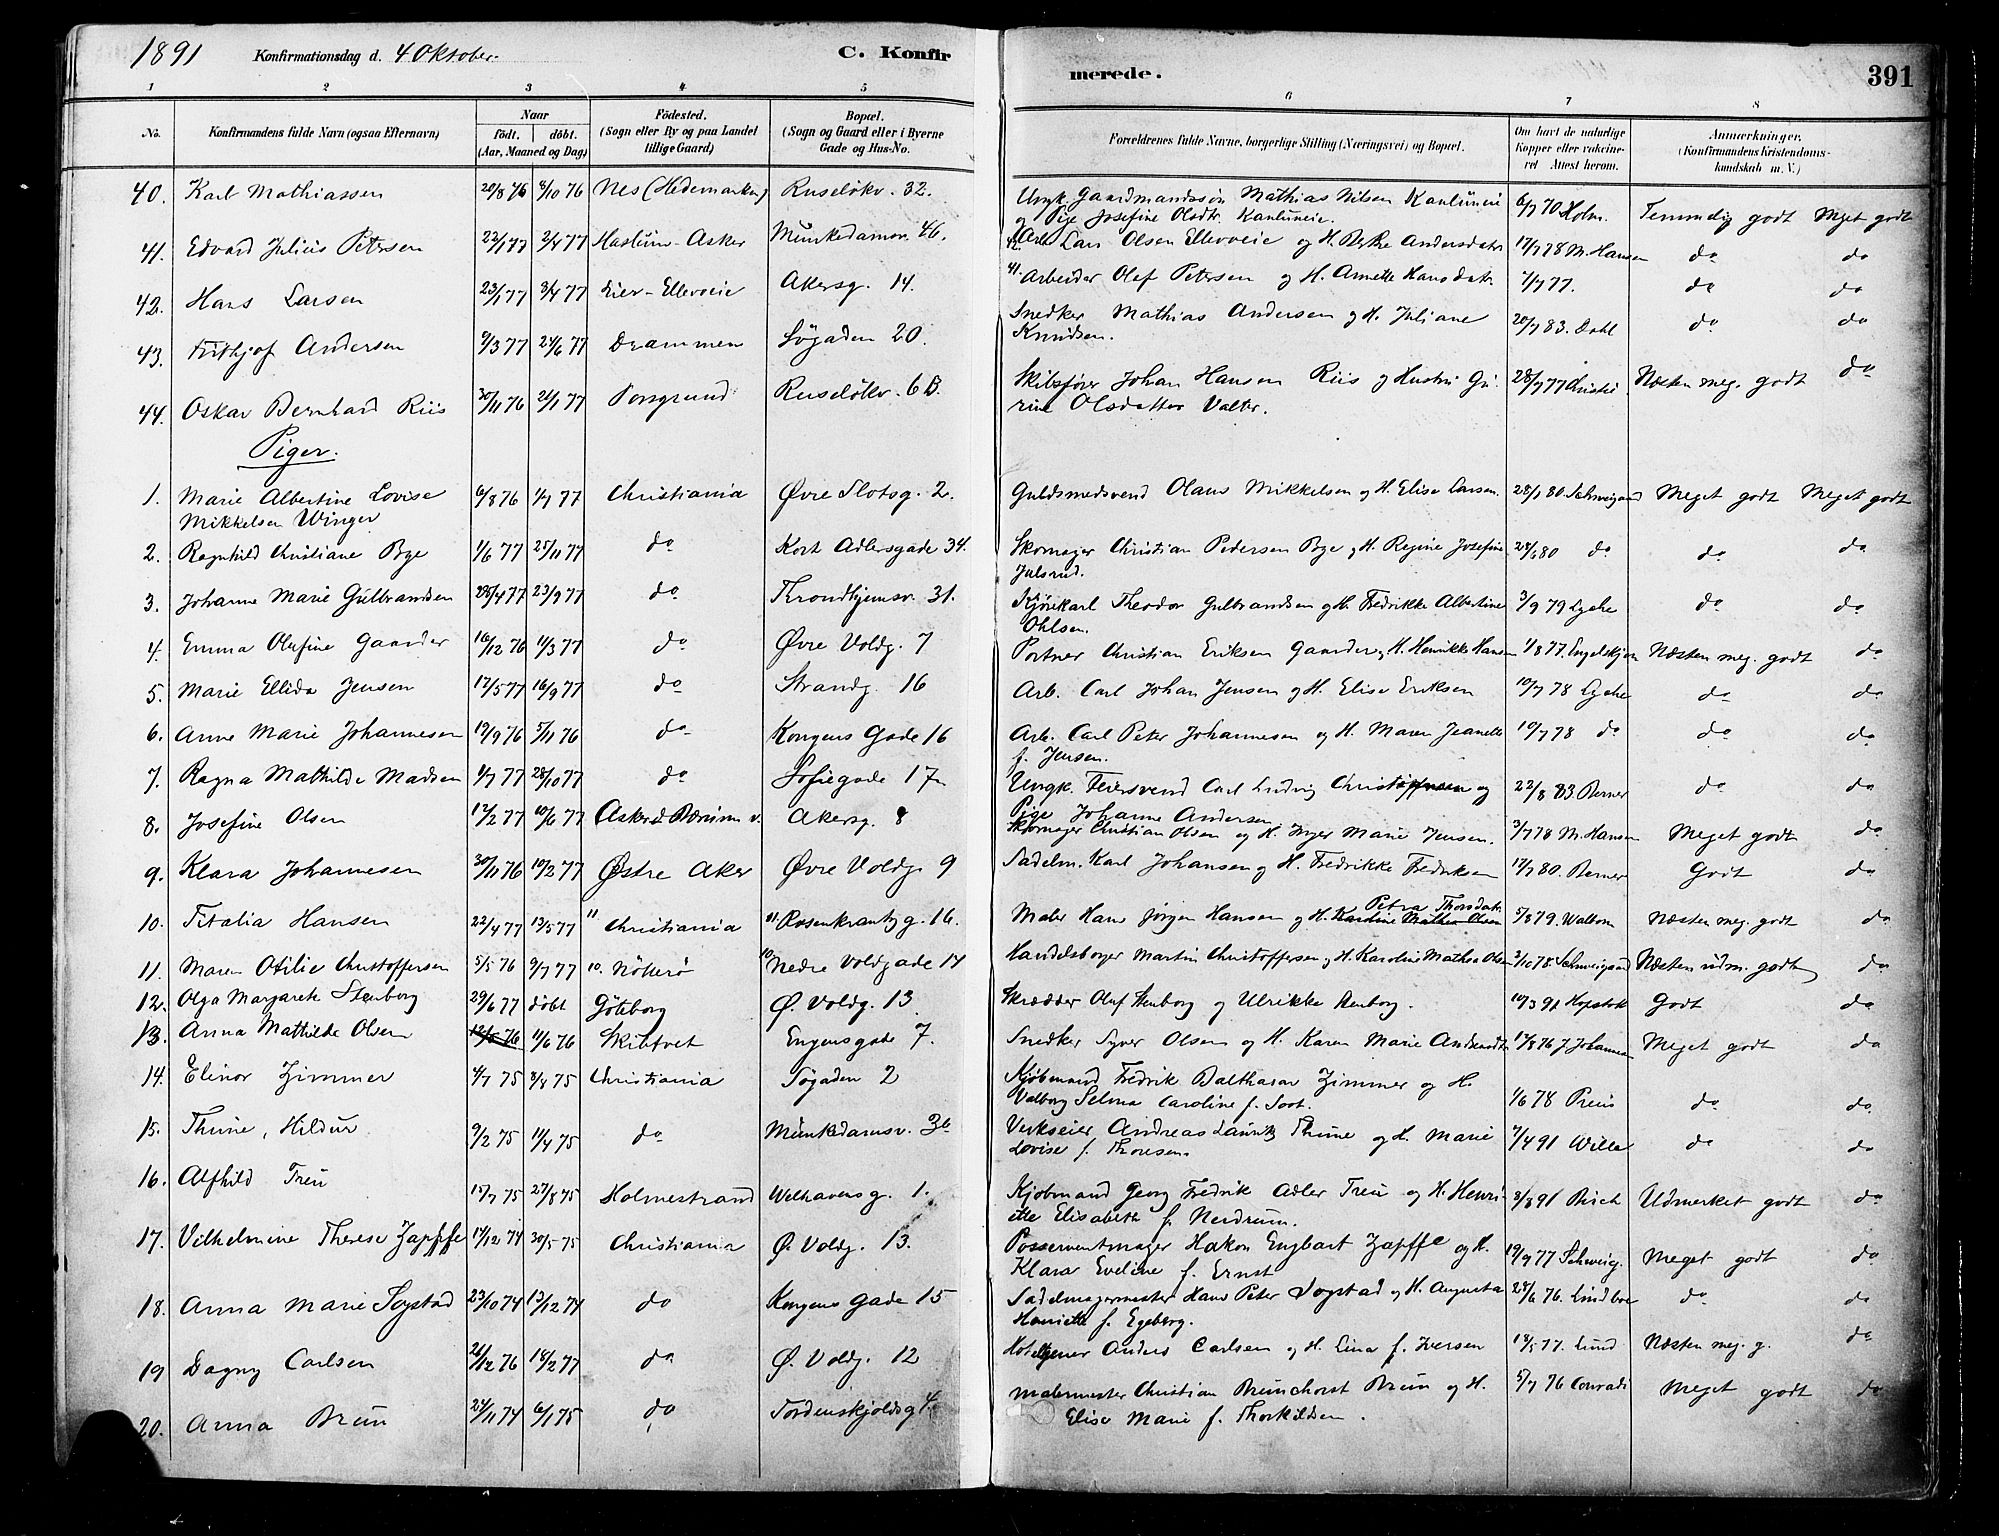 1891 Konfirmationsdag d. 4 Oktober. C. Konfirmerede. 391
1 2 3 4 5 6 7 8
No. Konfirmandens fulde Navn (ogsaa Efternavn) Naar födt. döbt. (Aar, Maaned og Dag) Födested. (Sogn eller By og paa Landet tillige Gaard) Bopæl. (Sogn og Gaard eller i Byerne Gade og Hus-No. Forældrenes fulde Navne, borgerlige Stilling (Næringsvei) og Bopæl. Om havt de naturlige Kopper eller vakcineret Attest herom. Anmærkninger, (Konfirmandens Kristendomskundskab m. V.)
40. Karl Mathiassen 20/8 76 8/10 76 Nes (Hedemarken) Ruseløkv. 32. Ungk. Gaardmandssøn Mathias Nilsen Kanluneie 6/7 70 Holm. Temmelig godt Meget godt
og Pige Josefine Olsdtr. Kanluneie.
41. Edvard Julius Petersen 22/1 77 2/4 77 Haslum-Asker Munkedamsv. 46. 42. Arb. Lars Olsen Ellevveie og H. Berthe Andersdatr 17/7 78 M. Hansen do do
42. Hans Larsen 23/1 77 3/4 77 Eier-Ellevveie Akersg. 14. 41. Arbeider Olaf Petersen og H. Annette Hansdatr. 7/7 77. do do
43. Frithjof Andersen 8/3 77 24/6 77 Drammen Søgaden 20. Snedker Mathias Andersen og H. Juliane 20/7 83. Dahl do do
Knudsen.
44. Oskar Bernhard Riis 30/11 76 21/1 77 Porsgrund Ruseløkv. 6 B. Skibsfører Johan Hansen Riis og Hustru Gu- 28/9 77 Christie Næsten meg. godt do
rine Olsdatter Valter.
Piger.
1. Marie Albertine Lovise 6/8 76 1/4 77 Christiania Øvre Slotsg. 2. Guldsmedsvend Olaus Mikkelsen og H. Elise Larsen. 28/1 80. Schweigaard Meget godt Meget godt
Mikkelsen Winger
2. Ragnhild Christiane Bye 1/6 77 25/11 77 do Kort Adlersgade 34. Skomager Christian Pedersen Bye og H. Regine Josefine 28/1 80 do do do
Julsrud.
3. Johanne Marie Gulbrandsen 28/4 77 23/9 77 do Trondhjemsv. 31. Kjørekarl Theodor Gulbrandsen og H. Fredrikke Albertine 3/9 79 Lyche do do
Ohlsen.
4. Emma Olufine Gaarder 16/12 76 11/3 77 do Øvre Voldg. 7 Portner Christian Eriksen Gaarder og H. Henrikke Hansen 1/8 77. Engelskjøn Næsten meg. godt do
5. Marie Ellida Jensen 17/5 77 16/9 77 do Strandg. 16 Arb. Carl Johan Jensen og H. Elise Eriksen 10/7 78 Lyche do do
6. Anne Marie Johannesen 19/9 76 5/11 76 do Kongens Gade 16 Arb. Carl Peter Johannesen og H. Maren Jeanette 10/7 78 do do do
f. Jensen.
7. Ragna Mathilde Madsen 1/7 77 28/10 77 do Sofiegade 17 Ungk. Feiersvend Carl Ludvig Christoffersen og 22/8 83. Berner do do
Pige Johanne Andersen
8. Josefine Olsen 12/2 77 10/6 77 Asker Bærum Akersg. 8 Skomager Christian Olsen og H. Inger Marie Jensen. 3/7 78 M. Hansen Meget godt do
9. Klara Johannesen 30/11 76 10/2 77 Østre Aker Øvre Voldg. 9 Sadelm. Karl Johansen og H. Fredrikke Fredriksen 17/7 80. Berner Godt do
10. Titalia Hansen 22/4 77 13/5 77 11 Christiania 11. Rosenkrantzg. 16. Maler Hans Jørgen Hansen og H. Karoline Mathea Olsen Petra Thorsdatr. 5/8 79. Walbom Næsten meg. godt do
11. Maren Otilie Christoffersen 5/5 76 9/7 77 10. Nötterö 10 Nedre Voldgade 14 Handelsborger Martin Christoffersen og H. Karoline Mathea Olsen 3/10 78. Schweigaard Næsten udm. godt do
12. Olga Margarete Stenborg 29/6 77 døbt Göteborg Ø. Voldg. 13. Skrædder Oluf Stenborg og Ulrikke Stenborg. 10/3 91 Hopstok Godt do
13. Anna Mathilde Olsen 12/5 76 11/6 76 Skibtvet Engensgade 7. Snedker Syver Olsen og H. Karen Marie 17/8 76 J. Johannesen Meget godt do
14. Elinor Zimmer 4/7 75 8/8 75 Christiania Søgaden 2 Kjøbmand Fredrik Balthasar Zimmer og H.
Valborg Selma Caroline f. Soot. 1/6 78 Preus do do
15. Thune, Hildur 9/2 75 11/4 75 do Munkedamsv. 3b Verkseier Andreas Lauritz Thune og H. Marie 7/4 91 Wille do do
Lovise f. Thoresen.
16. Alfhild Treu 15/7 75 27/8 75 Holmestrand Welhavensg. 1. Kjøbmand Georg Fredrik Adler Treu og H. Henri- 8/8 91 Birch Udmerket godt do
ette Elisabeth f. Nerdrum.
17. Vilhelmine Therese Zapffe 17/12 74 30/5 75 Christiania Ø. Voldg. 13. Possementmager Hakon Engbart Zapffe og H. 19/9 77 Schweig. Meget godt do
Klara Eveline f. Ernst
18. Anna Marie Sogstad 23/10 74 13/12 74 do Kongens Gade 15 Sadelmagermester Hans Peter Sogstad og H. Augusta 28/6 76. Lindboe do do
Henriette f. Egeberg.
19 Dagny Carlsen 26/12 76 18/2 77 do Ø. Voldg. 12 Hoteleier Anders Carlsen og H. Lina f. Iversen 18/5 77. Lund Næsten meg. g. do
20. Anna Bruun 24/11 74 6/1 75 do Tordenskjoldsg 4. Malermester Christian Brunchorst Bruun og H. 5/7 76 Conradi Meget godt do
Elise Marie f. Thorkildsen.